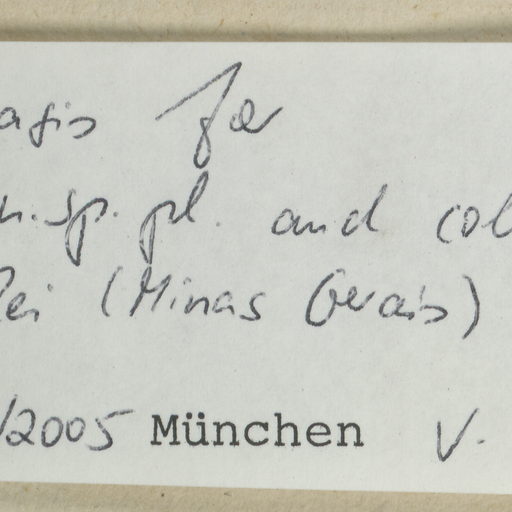 basis for
n. sp. pl. and col
Rei (Minas Gerais)
/2005 München V.